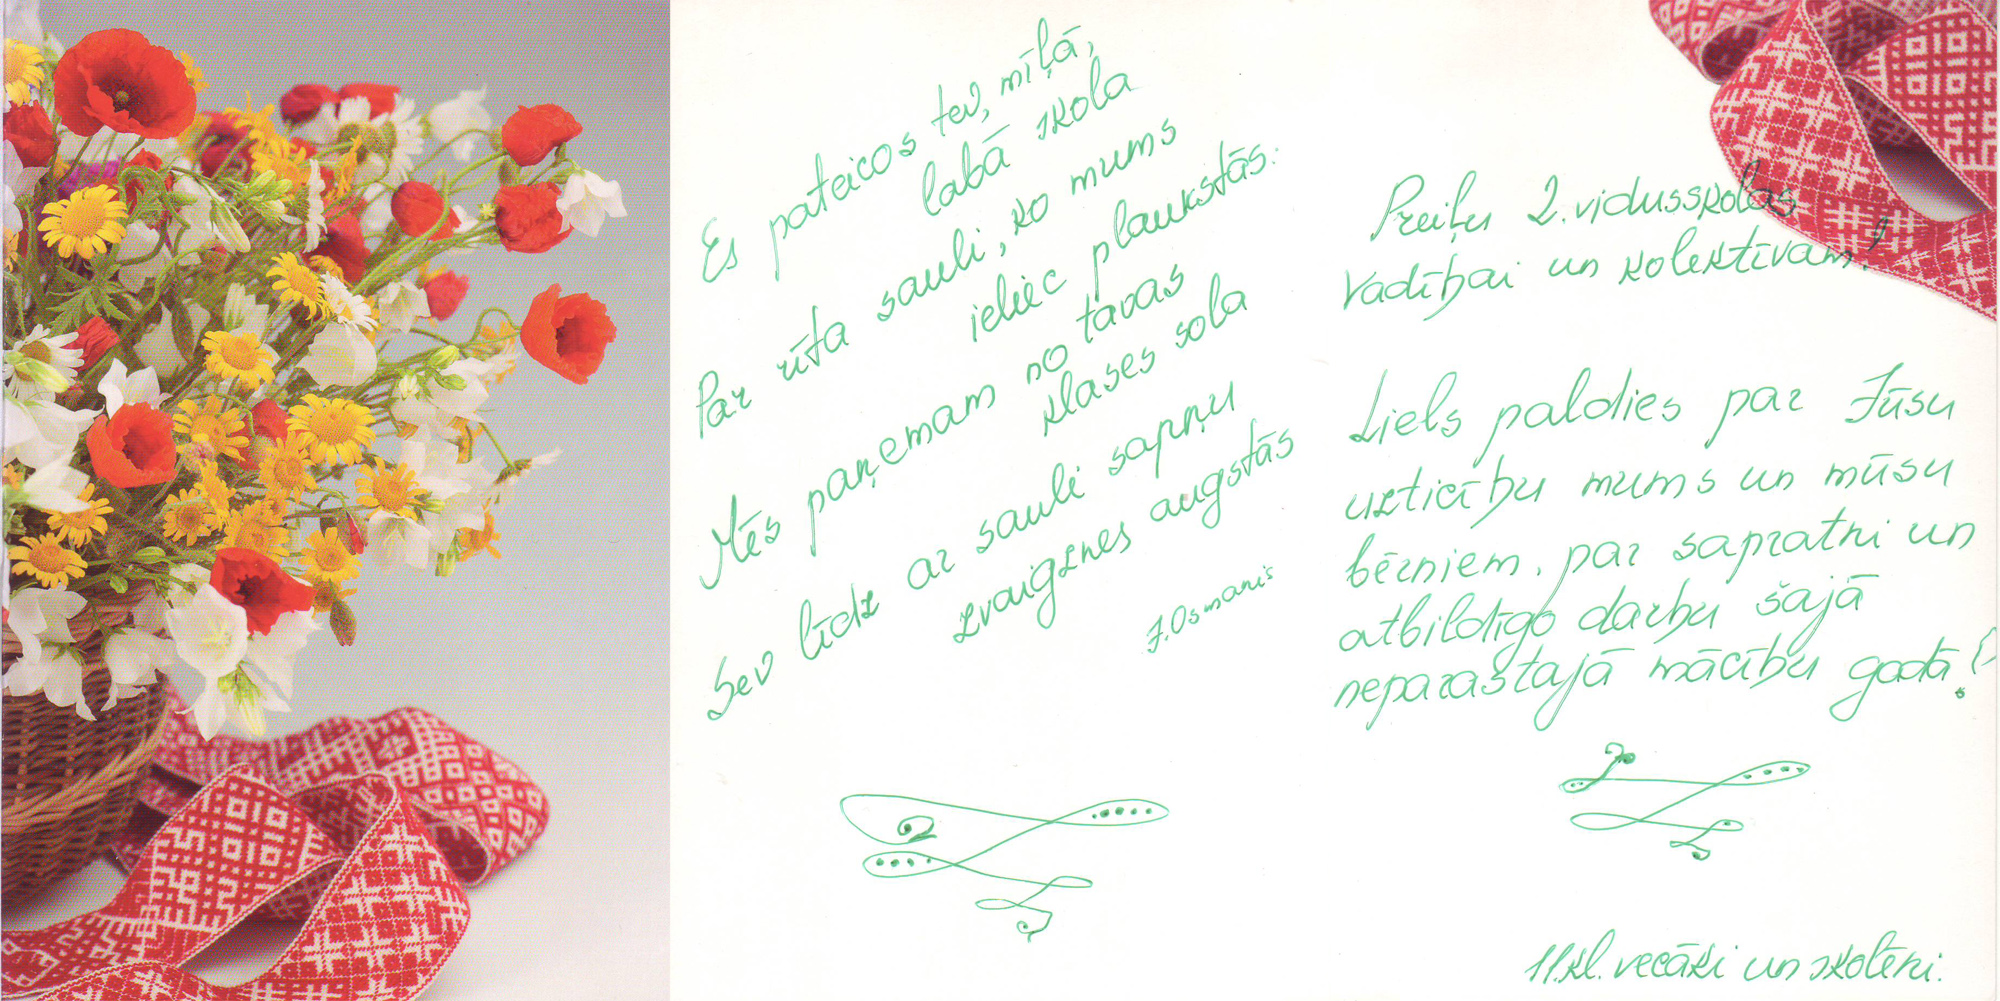 Es pateicos tev, mīļā,
labā skola
Par rīta sauli, ko mums
ieliec plaukstās.
Mēs paņemam no tavas
klases sola
Sev līdz ar sauli sapņu
zvaigznes augstās
J. Osmanis
Preiļu 2. vidusskolas
vadībai un kolektīvam!
Liels paldies par Jūsu
uzticību mums un mūsu
bērniem, par sapratni un
atbildīgo darbu šajā
neparastajā mācību gadā!
11.kl. vecāki un skolēni.